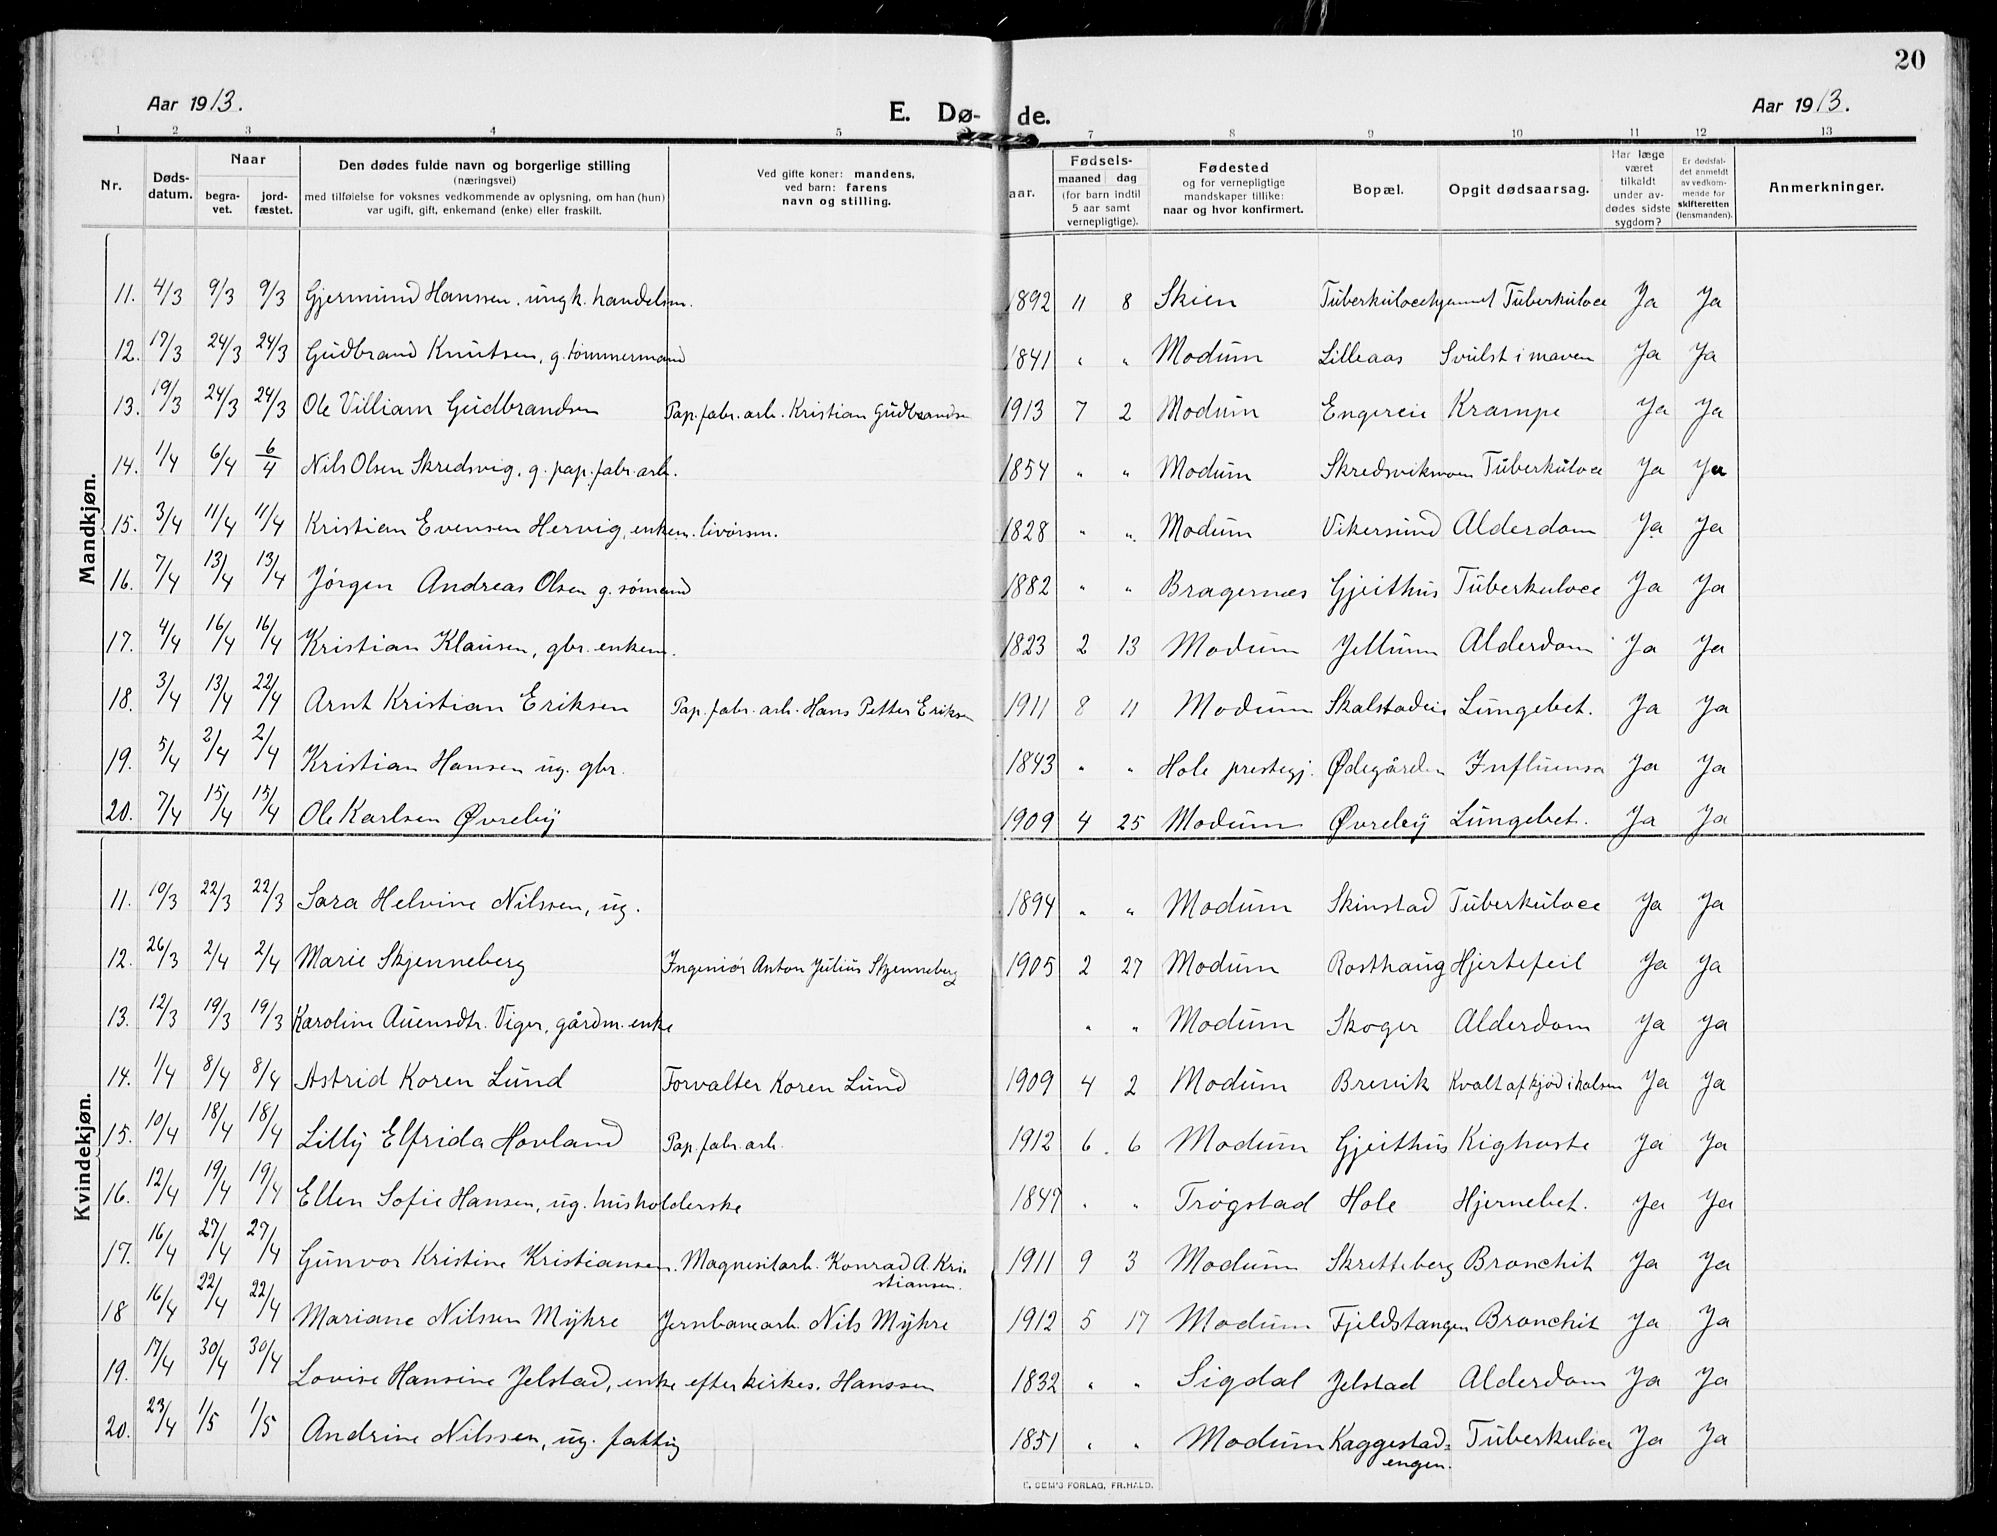 20
Aar 1913.
E. Dø- de.
Aar 1913.
1 2 3 4 5 7 8 9 10 11 12 13
Nr.
Døds-
datum.
Naar
begra-
vet.
jord-
fæstet.
Den dødes fulde navn og borgerlige stilling
(næringsvei)
med tilføielse for voksnes vedkommende av oplysning, om han (hun)
var ugift, gift, enkemand (enke) eller fraskilt.
Ved gifte koner: mandens,
ved barn: farens
navn og stilling.
aar.
Fødsels-
maaned dag
(for barn indtil
5 aar samt
vernepligtige).
Fødested
og for vernepligtige
mandskaper tillike:
naar og hvor konfirmert.
Bopæl.
Opgit dødsaarsag.
Har læge
været
tilkaldt
under av-
dødes sidste
sygdom?
Er dødsfal-
det anmeldt
av vedkom-
mende for
skifteretten
(lensmanden).
Anmerkninger.
Mandkjøn.
11. 4/3 9/3 9/3 Gjermund Hanssen. ungk. handelsm. 1892 11 8 Skien Tuberkulocehjemmet Tuberkuloce Ja Ja
12. 17/3 24/3 24/3 Gudbrand Knutsen, g. tømmermand 1841 " " Modum Lilleaas Svulst i maven Ja Ja
13. 19/3 24/3 24/3 Ole Villiam Gudbrandsen Pap. fabr. arb. Kristian Gudbrandsen 1913 7 2 Modum Engereie Krampe Ja Ja
14. 1/4 6/4 6/4 Nils Olsen Skredsvig, g. pap. fabr. arb. 1854 " " Modum Skredsvikmoen Tuberkuloce Ja Ja
15. 3/4 11/4 11/4 Kristian Evensen Hervig, enkem. livørsm. 1828 " " Modum Vikersund Alderdom Ja Ja
16. 7/4 13/4 13/4 Jørgen Andreas Olsen g. sømand 1882 " " Bragernæs Gjeithus Tuberkuloce Ja Ja
17. 4/4 16/4 16/4 Kristian Klausen, gbr. enkem. 1823 2 13 Modum Jellum Alderdom Ja Ja
18. 3/4 13/4 22/4 Arnt Kristian Eriksen Pap. fabr. arb. Hans Petter Eriksen 1911 8 11 Modum Skalstadeie Lungebet. Ja Ja
19. 5/4 2/4 2/4 Kristian Hansen ug. gbr. 1843 " " Hole prestegj. Ødegården Influensa Ja Ja
20. 7/4 15/4 15/4 Ole Karlsen Øvreby 1909 4 25 Modum Øvreby Lungebet. Ja Ja
Kvindekjøn.
11. 10/3 22/3 22/3 Sara Helvine Nilssen, ug. 1894 " " Modum Skinstad Tuberkuloce Ja Ja
12. 26/3 2/4 2/4 Marie Skjenneberg Ingeniør Anton Julius Skjenneberg 1905 2 27 Modum Rosthaug Hjertefeil Ja Ja
13. 12/3 19/3 19/3 Karoline Auensdtr. Viger, gårdm. enke " " Modum Skoger Alderdom Ja Ja
14. 1/4 8/4 8/4 Astrid Koren Lund Forvalter Koren Lund 1909 4 2 Modum Brevik Kvalt af kjød i halsen Ja Ja
15. 10/4 18/4 18/4 Lilly Elfrida Hovland Pap. fabr. arb. 1912 6. 6 Modum Gjeithus Kighoste Ja Ja
16. 12/4 19/4 19/4 Ellen Sofie Hansen, ug. husholderske 1847 " " Trøgstad Hole Hjernebet. Ja Ja
17. 16/4 27/4 27/4 Gunvor Kristine Kristiansen. Magnesitarb. Konrad A. Kri-
stiansen. 1911 9 3 Modum Skretteberg Bronchit Ja Ja
18 16/4 22/4 22/4 Mariane Nilssen Myhre Jernbanearb. Nils Myhre 1912 5 17 Modum Fjeldstangen Bronchit Ja Ja
19. 17/4 30/4 30/4 Lovise Hansine Jelstad, enke efter kirkes. Hanssen 1832 " " Sigdal Jelstad Alderdom Ja Ja
20. 23/4 1/5 1/5 Andrine Nilssen, ug. fattig 1851 " " Modum Kaggestad=
engen. Tuberkuloce Ja Ja
E. SEM'S FORLAG, FR.HALD.